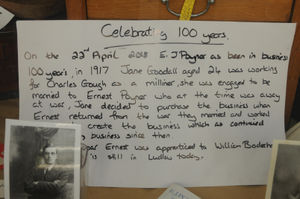 Celebrati g 100 years.
On the 22nd April 2018 E.J Poyner as been in business
100 years, in 1917 Jane Goodall aged 24 was working
for Charles Gough as a milliner, she was engaged to be
married to Ernest Poyner who at the time was away
at war, Jane decided to purchase the business when
Ernest returned from the war they married and worked
create the business which as continued
business since then.
Ernest was apprenticed to William
is still in Ludlow today.